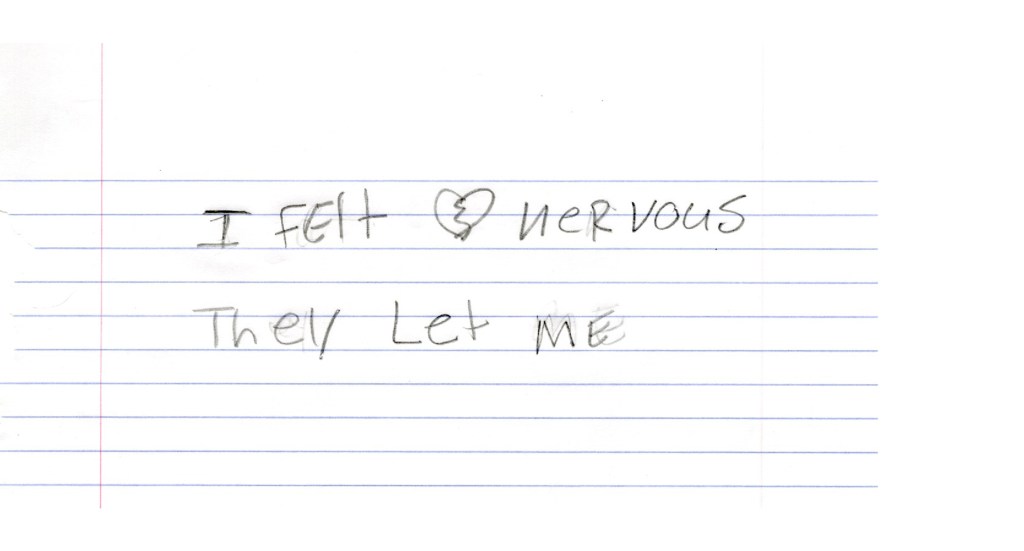 I FElt neRvous
They Let ME